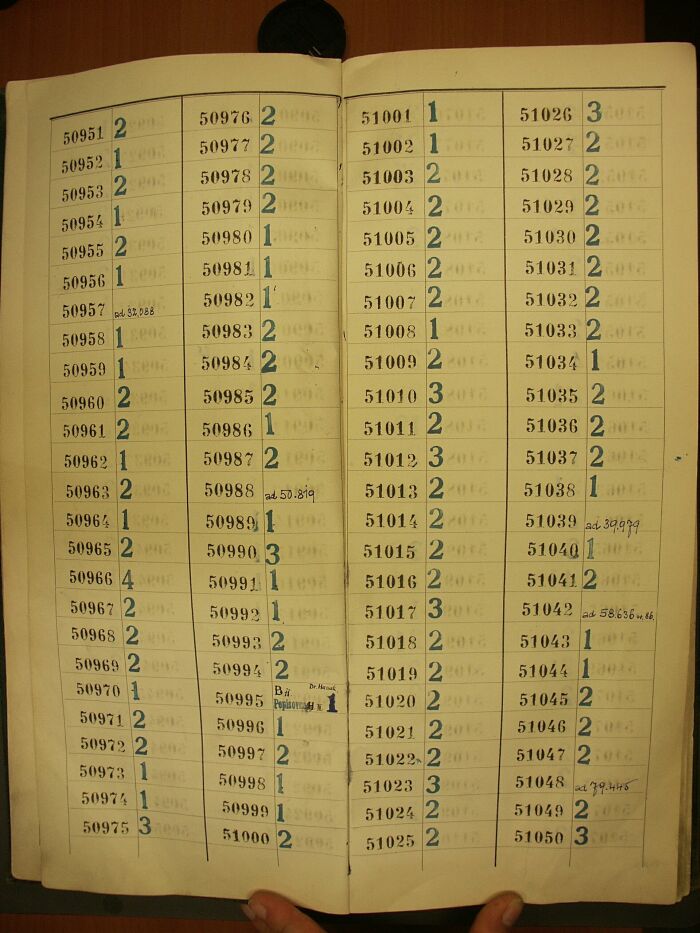 50951 2
50952 1
50953 2
50954 1
50955 2
50956 1
50957 ad 32,088
50958 1
50959 1
50960 2
50961 2
50962 1
50963 2
50964 1
50965 2
50966 4
50967 2
50968 2
50969 2
50970 1
50971 2
50972 2
50973 1
50974 1
50975 3
50976 2
50977 2
50978 2
50979 2
50980 1
50981 1
50982 1
50983 2
50984 2
50985 2
50986 1
50987 2
50988 ad 50.819
50989 1
50990 3
50991 1
50992 1
50993 2
50994 2
50995 1
50996 1
50997 2
50998 1
50999 1
51000 2
51001 1
51002 1
51003 2
51004 2
51005 2
51006 2
51007 2
51008 1
51009 2
51010 3
51011 2
51012 3
51013 2
51014 2
51015 2
51016 2
51017 3
51018 2
51019 2
51020 2
51021 2
51022 2
51023 3
51024 2
51025 2
51026 3
51027 2
51028 2
51029 2
51030 2
51031 2
51032 2
51033 2
51034 1
51035 2
51036 2
51037 2
51038 1
51039 ad 39.979
51040 1
51041 2
51042 ad 58.636
51043 1
51044 1
51045 2
51046 2
51047 2
51048 ad 79.445
51049 2
51050 3